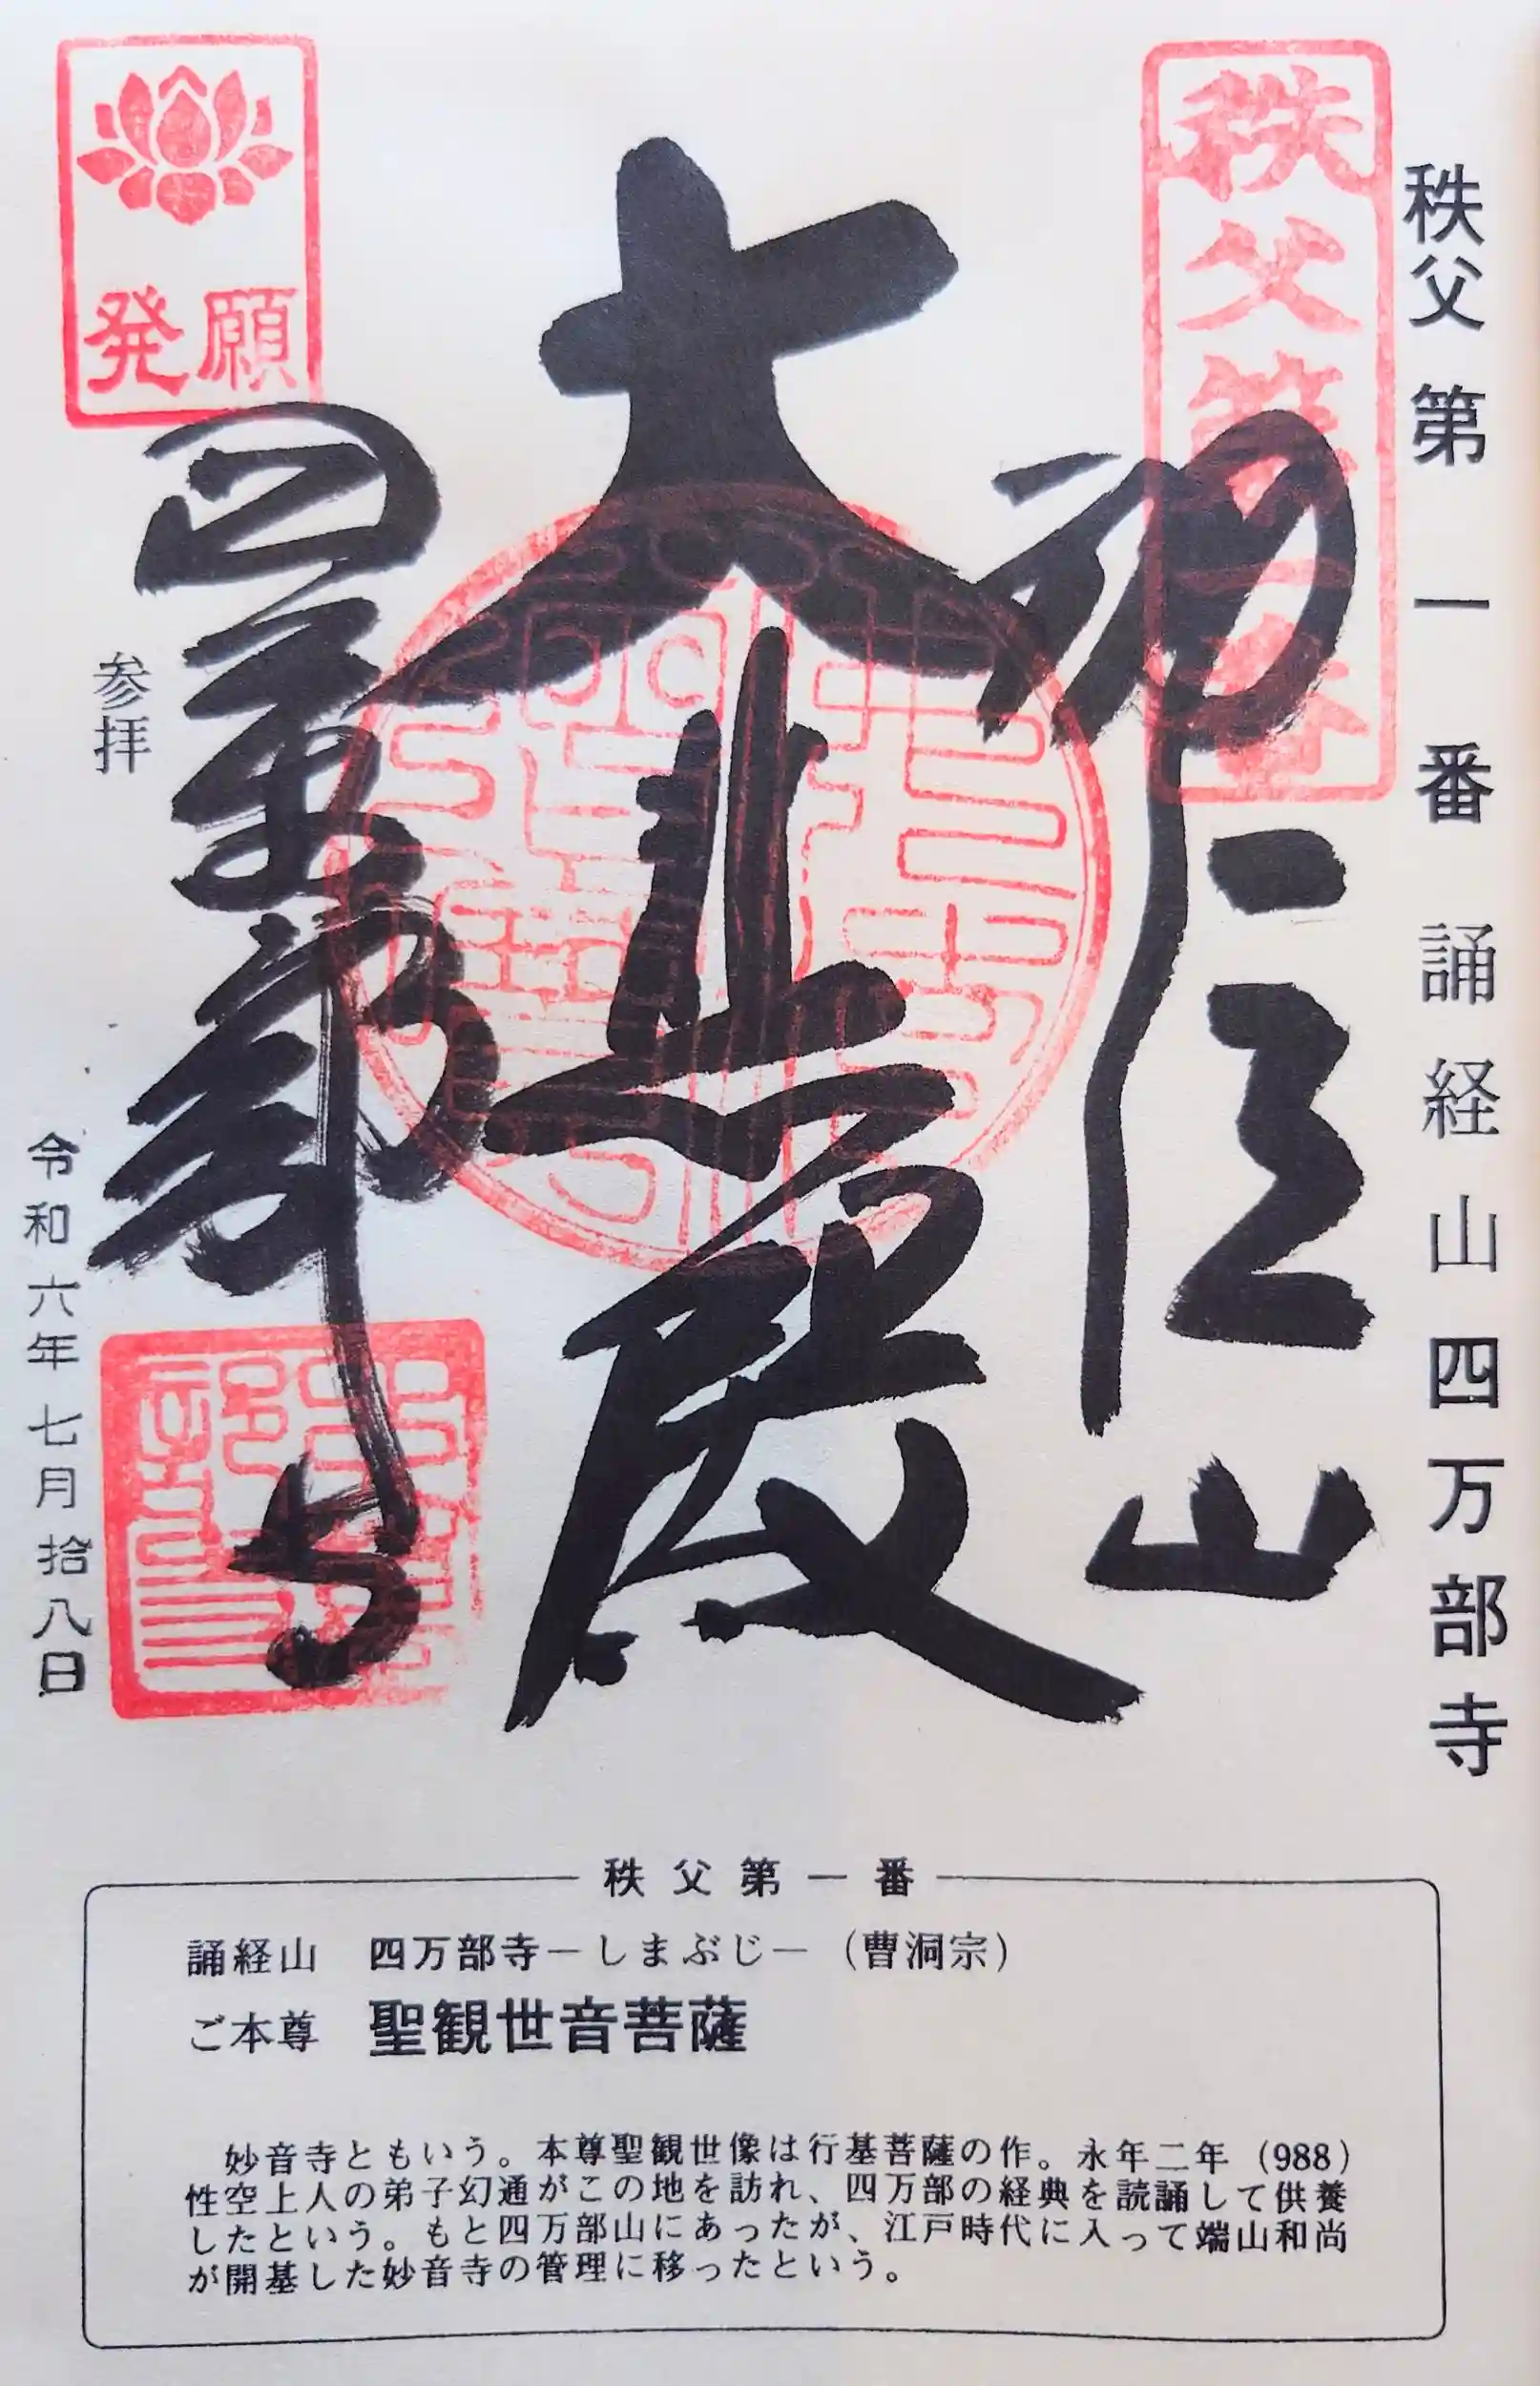 秩父第一番誦経山四万部寺
秩父第一番
誦経山
大悲殿
発願
四萬部寺
参拝
令和六年七月拾八日
秩父第一番
誦経山 四万部寺－しまぶじ－（曹洞宗）
ご本尊 聖観世音菩薩
妙音寺ともいう。本尊聖観世像は行基菩薩の作。永年二年（988）
性空上人の弟子幻通がこの地を訪れ、四万部の経典を読誦して供養
したという。もと四万部山にあったが、江戸時代に入って端山和尚
が開基した妙音寺の管理に移ったという。